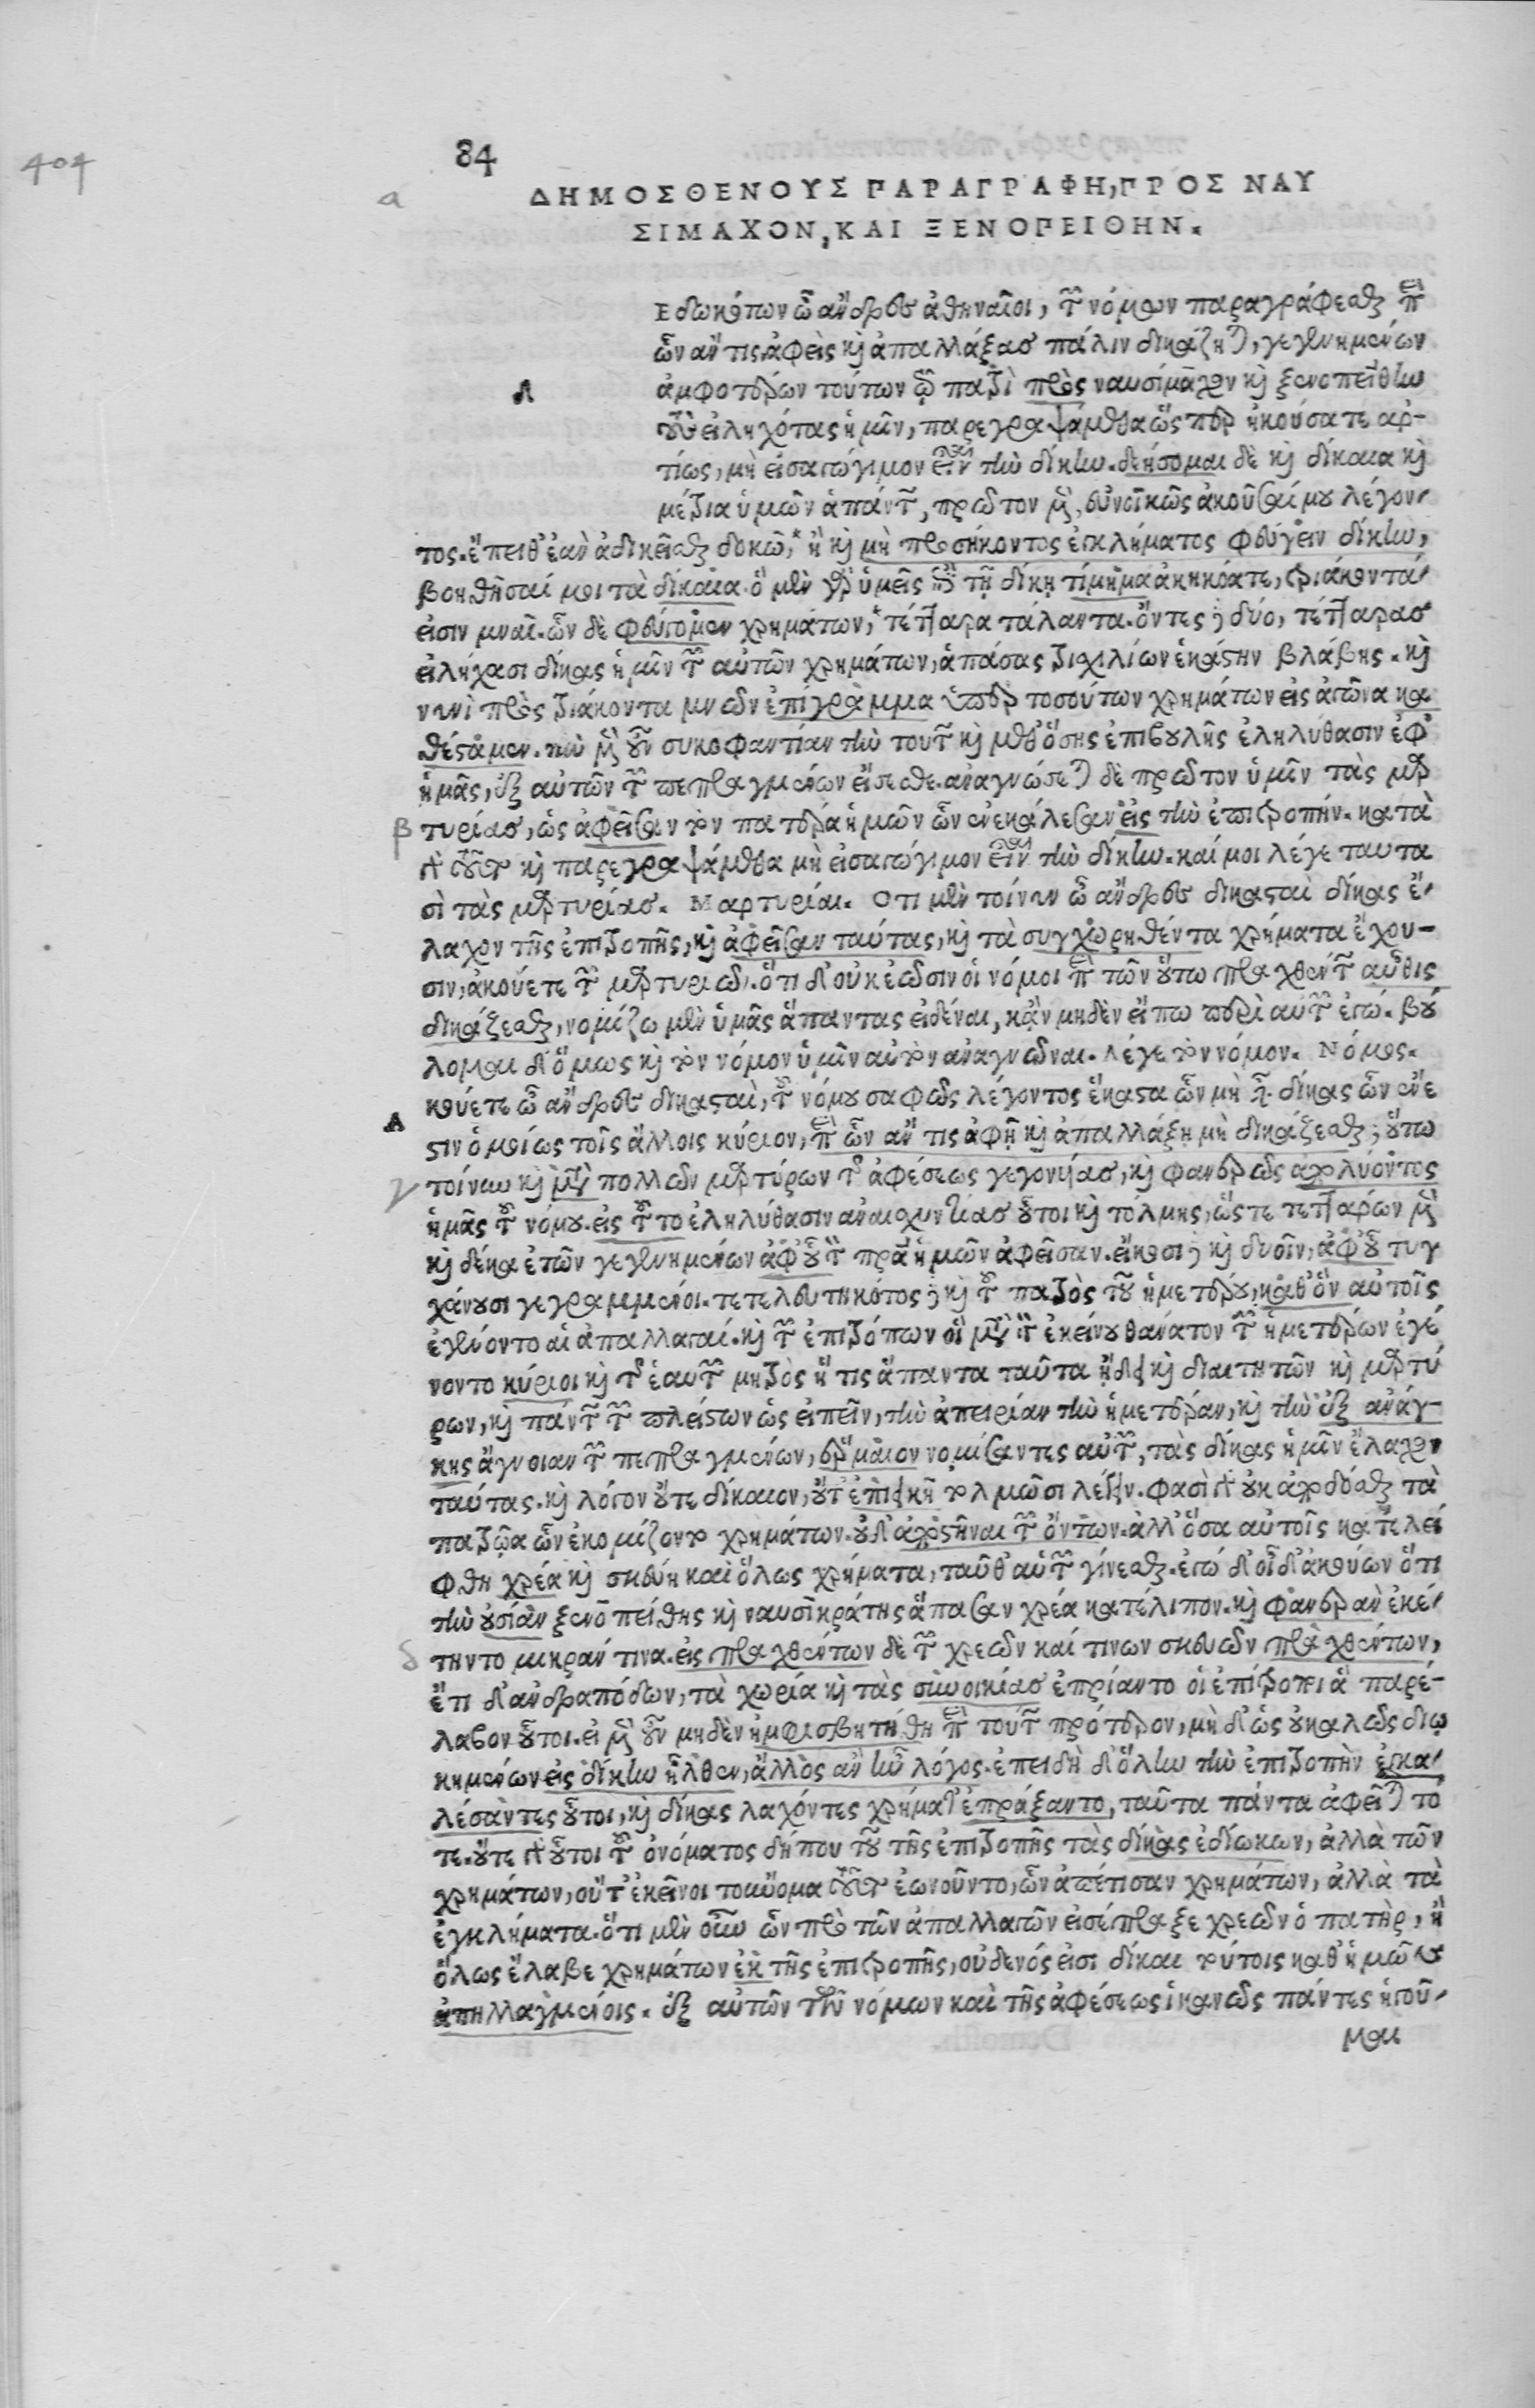 404
84
a
ΔΗΜΟΣΘΕΝΟΥΣ ΠΑΡΑΓΡΑΦΗ, ΠΡΟΣ ΝΑΥ
ΣΙΜΑΧΟΝ, ΚΑΙ ΞΕΝΟΠΕΙΘΗΝ.
Εδωκότων ὦ ἄνδρες ἀθηναῖοι, τῶν νόμων παραγράφεσθαι περὶ
ὧν ἄν τις ἀφεὶς ϗ ἀπαλλάξας πάλιν δικάζηται, γεγενημένων
Δ
ἀμφοτέρων τούτων τῷ πατρὶ πρὸς ναυσίμαχον ϗ ξενοπείθην
τοὺς εἰληχότας ἡμῖν, παρεγραψάμεθα ὥσπερ ἠκούσατε ἀρ-
τίως, μὴ εἰσαγώγιμον εἶναι τὴν δίκην. δεήσομαι δὲ ϗ δίκαια ϗ
μέτρια ὑμῶν ἁπάντων, πρῶτον μὲν, εὐνοϊκῶς ἀκοῦσαί μου λέγον-
τος. ἔπειθ' ἐὰν ἀδικεῖσθαι δοκῶ,* ἢ ϗ μὴ προσήκοντος ἐγκλήματος φεύγειν δίκην,
βοηθῆσαί μοι τὰ δίκαια. ὃ μὲν γὰρ ὑμεῖς ἐπὶ τῇ δίκῃ τίμημα ἀκηκόατε, τριάκοντά
εἰσιν μναῖ. ὧν δὲ φεύγομεν χρημάτων,* τέτταρα τάλαντα. ὄντες γὰρ δύο, τέτταρας
εἰλήχασι δίκας ἡμῖν τῶν αὐτῶν χρημάτων, ἁπάσας τρισχιλίων ἑκάστην βλάβης. ϗ
νυνὶ πρὸς τριάκοντα μνῶν ἐπίγραμμα ὑπὲρ τοσούτων χρημάτων εἰς ἀγῶνα κα
θέσταμεν. τὴν μὲν οὖν συκοφαντίαν τὴν τούτων ϗ μεθ' ὅσης ἐπιβουλῆς ἐληλύθασιν ἐφ'
ἡμᾶς, ἐξ αὐτῶν τῶν πεπραγμένων εἴσεσθε. ἀναγνώσεται δὲ πρῶτον ὑμῖν τὰς μαρ
β
τυρίας, ὡς ἀφεῖσαν τὸν πατέρα ἡμῶν ὧν ἐνεκάλεσαν εἰς τὴν ἐπιτροπήν. κατὰ
γὰρ τοῦτο ϗ παρεγραψάμεθα μὴ εἰσαγώγιμον εἶναι τὴν δίκην. καί μοι λέγε ταυτα
σὶ τὰς μαρτυρίας. Μαρτυρίαι. Οτι μὲν τοίνυν ὦ ἄνδρες δικασταὶ δίκας ἔ-
λαχον τῆς ἐπιτροπῆς, ϗ ἀφεῖσαν ταύτας, ϗ τὰ συγχωρηθέντα χρήματα ἔχου-
σιν, ἀκούετε τῶν μαρτυριῶν. ὅτι δ' οὐκ ἐῶσιν οἱ νόμοι περὶ τῶν οὕτω πραχθέντων αὖθις
δικάζεσθαι, νομίζω μὲν ὑμᾶς ἅπαντας εἰδέναι, κἂν μηδὲν εἴπω περὶ αὐτῶν ἐγώ. βού
λομαι δ' ὅμως ϗ τὸν νόμον ὑμῖν αὐτὸν ἀναγνῶναι. λέγε τὸν νόμον. Νόμος.
Α
κούετε ὦ ἄνδρες δικασταὶ, τοῦ νόμου σαφῶς λέγοντος ἕκαστα ὧν μὴ εἶναι δίκας ὧν ἕνε
στιν ὁμοίως τοῖς ἄλλοις κύριον, περὶ ὧν ἄν τις ἀφῇ ϗ ἀπαλλάξῃ μὴ δικάζεσθαι, οὕτω
γ
τοίνυν ϗ μετὰ πολλῶν μαρτύρων τῆς ἀφέσεως γεγονυίας, ϗ φανερῶς ἀπολύοντος
ἡμᾶς τοῦ νόμου. εἰς τοῦτο ἐληλύθασιν ἀναισχυντίας οὗτοι ϗ τόλμης, ὥστε τεττάρων μὲν
ϗ δέκα ἐτῶν γεγενημένων ἀφ' οὗ τὸν πατέρα ἡμῶν ἀφεῖσαν. εἴκοσι δὲ ϗ δυοῖν, ἀφ' οὗ τυγ
χάνουσι γεγραμμένοι. τετελευτηκότος δὲ ϗ τοῦ πατρὸς τοῦ ἡμετέρου, καθ' ὃν αὐτοῖς
ἐγένοντο αἱ ἀπαλλαγαί. ϗ τῶν ἐπιτρόπων οἳ μετὰ τὸν ἐκείνου θάνατον τῶν ἡμετέρων ἐγέ
νοντο κύριοι ϗ τῆς ἑαυτῶν μητρὸς ἥ τις ἅπαντα ταῦτα ᾔδει ϗ διαιτητῶν ϗ μαρτύ
ρων, ϗ πάντων τῶν πλείστων ὡς εἰπεῖν, τὴν ἀπειρίαν τὴν ἡμετέραν, ϗ τὴν ἐξ ἀνάγ-
κης ἄγνοιαν τῶν πεπραγμένων, ἕρμαιον νομίσαντες αὐτῶν, τὰς δίκας ἡμῖν ἔλαχον
ταύτας. ϗ λόγον οὔτε δίκαιον, οὔτ' ἐπιεικῆ τολμῶσι λέγειν. φασὶ γὰρ οὐκ ἀποδόσθαι τὰ
πατρῷα ὧν ἐκομίζοντο χρημάτων. οὐδ' ἀποστῆναι τῶν ὄντων. ἀλλ' ὅσα αὐτοῖς κατελεί
φθη χρέα ϗ σκεύη καὶ ὅλως χρήματα, ταῦθ' αὑτῶν γίνεσθαι. ἐγὼ δ' οἶδ' ἀκούων ὅτι
τὴν οὐσίαν ξενοπείθης ϗ ναυσικράτης ἅπασαν χρέα κατέλιπον. ϗ φανερὰν ἐκέ-
δ
τηντο μικράν τινα. εἰσπραχθέντων δὲ τῶν χρεῶν καί τινων σκευῶν πραχθέντων,
ἔτι δ' ἀνδραπόδων, τὰ χωρία ϗ τὰς συνοικίας ἐπρίαντο οἱ ἐπίτροποι ἃ παρέ-
λαβον οὗτοι. εἰ μὲν οὖν μηδὲν ἠμφισβητήθη περὶ τούτων πρότερον, μὴ δ' ὡς οὐ καλῶς διῳ
κημένων εἰς δίκην ἦλθεν, ἄλλος ἂν ἦν λόγος. ἐπειδὴ δ' ὅλην τὴν ἐπιτροπὴν ἐγκα-
λέσαντες οὗτοι, ϗ δίκας λαχόντες χρήματ' ἐπράξαντο, ταῦτα πάντα ἀφεῖται τό
τε. οὔτε γὰρ οὗτοι τοῦ ὀνόματος δήπου τοῦ τῆς ἐπιτροπῆς τὰς δίκας ἐδίωκων, ἀλλὰ τῶν
χρημάτων, οὔτ' ἐκεῖνοι τοὔνομα τοῦτο ἐωνοῦντο, ὧν ἀπέτισαν χρημάτων, ἀλλὰ τὰ
ἐγκλήματα. ὅτι μὲν οὖν ὧν πρὸ τῶν ἀπαλλαγῶν εἰσέπραξε χρεῶν ὁ πατὴρ, ἢ
ὅλως ἔλαβε χρημάτων ἐκ τῆς ἐπιτροπῆς, οὐδενός εἰσι δίκαι τούτοις καθ' ἡμῶν
ἀπηλλαγμένοις. ἐξ αὐτῶν τῶν νόμων καὶ τῆς ἀφέσεως ἱκανῶς πάντες ἡγοῦ-
μαι